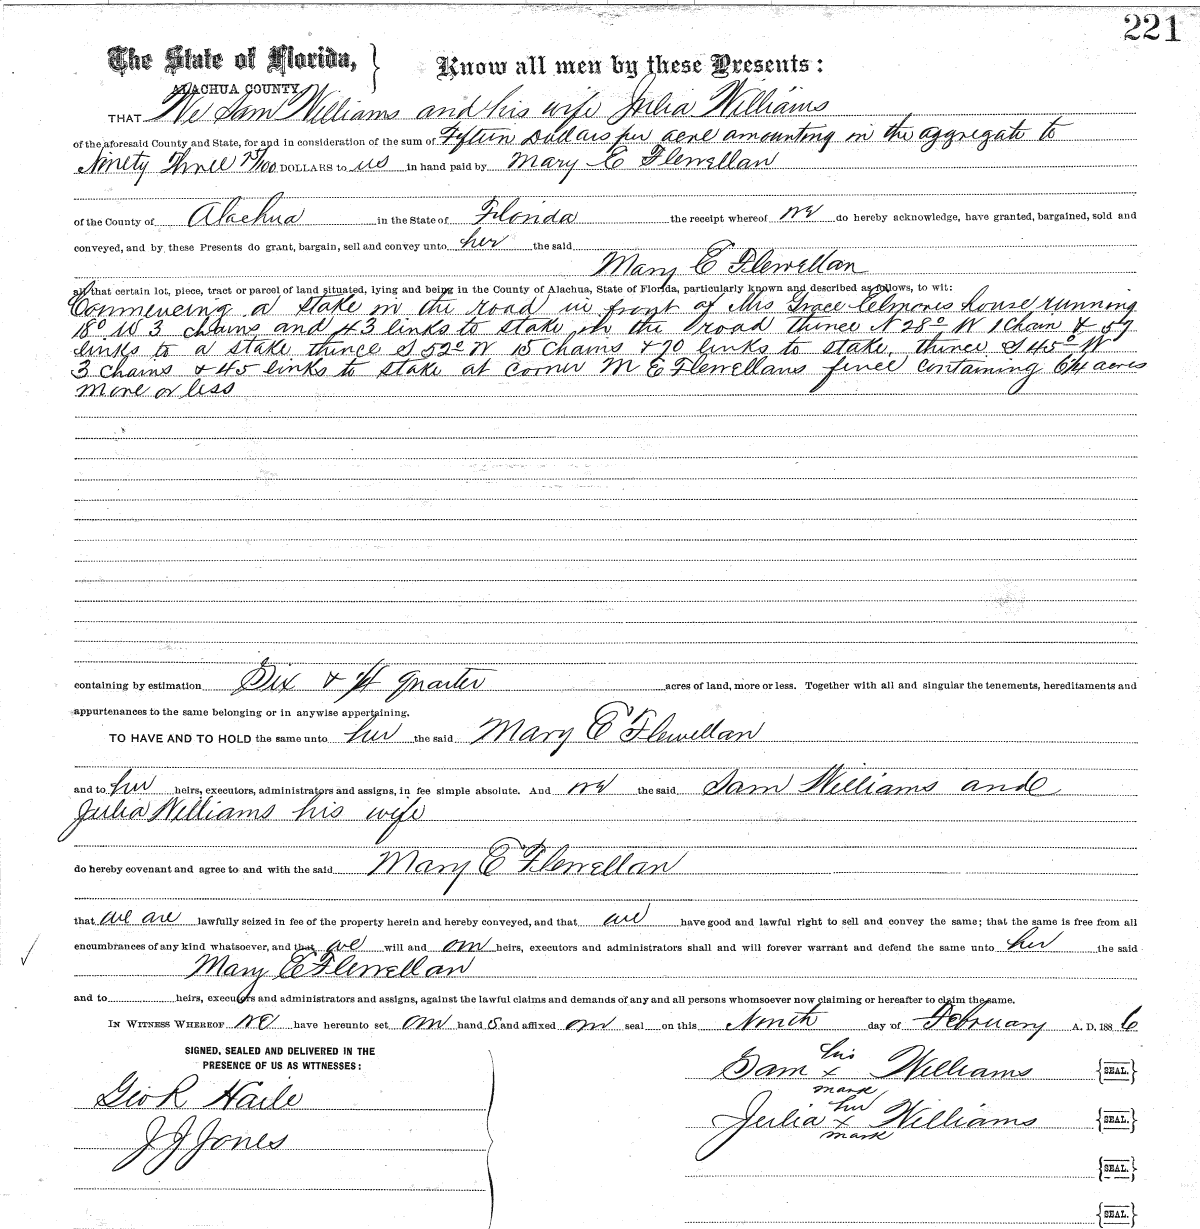 221
The State of Florida, } Know all men by these Presents:
ALACHUA COUNTY.
THAT We Sam Williams and his wife Julia Williams
of the aforesaid County and State, for and in consideration of the sum of Fifteen Dollars per acre amounting in the aggregate to
Ninety Three 75/100 DOLLARS to us in hand paid by Mary E Flewellan
of the County of Alachua in the State of Florida the receipt whereof we do hereby acknowledge, have granted, bargained, sold and
conveyed, and by these Presents do grant, bargain, sell and convey unto her the said
Mary E Flewellan
all that certain lot, piece, tract or parcel of land situated, lying and being in the County of Alachua, State of Florida, particularly known and described as follows, to wit:
Commencing a stake in the road in front of Mrs Grace Elmores house running
18° W 3 chains and 43 links to stake in the road thence N 28° W 1 Chain & 57
links to a stake thence S 52° W 15 Chains & 70 links to stake, thence S 45° W
3 Chains & 45 links to stake at corner M E Flewellans fence containing 6¼ acres
more or less
containing by estimation Six & ¼ quarter acres of land, more or less. Together with all and singular the tenements, hereditaments and
appurtenances to the same belonging or in anywise appertaining.
TO HAVE AND TO HOLD the same unto her the said Mary E Flewellan
and to her heirs, executors, administrators and assigns, in fee simple absolute. And we the said Sam Williams and
Julia Williams his wife
do hereby covenant and agree to and with the said Mary E Flewellan
that we are lawfully seized in fee of the property herein and hereby conveyed, and that we have good and lawful right to sell and convey the same; that the same is free from all
encumbrances of any kind whatsoever, and that we will and our heirs, executors and administrators shall and will forever warrant and defend the same unto her the said
Mary E Flewellan
and to heirs, executors and administrators and assigns, against the lawful claims and demands of any and all persons whomsoever now claiming or hereafter to claim the same.
IN WITNESS WHEREOF we have hereunto set our hand s and affixed our seal on this Ninth day of February A. D. 188 6
SIGNED, SEALED AND DELIVERED IN THE
PRESENCE OF US AS WITNESSES:
his
Sam x Williams {SEAL.}
mark
Geo R Haile
her
Julia x Williams {SEAL.}
mark
J J Jones
{SEAL.}
{SEAL.}